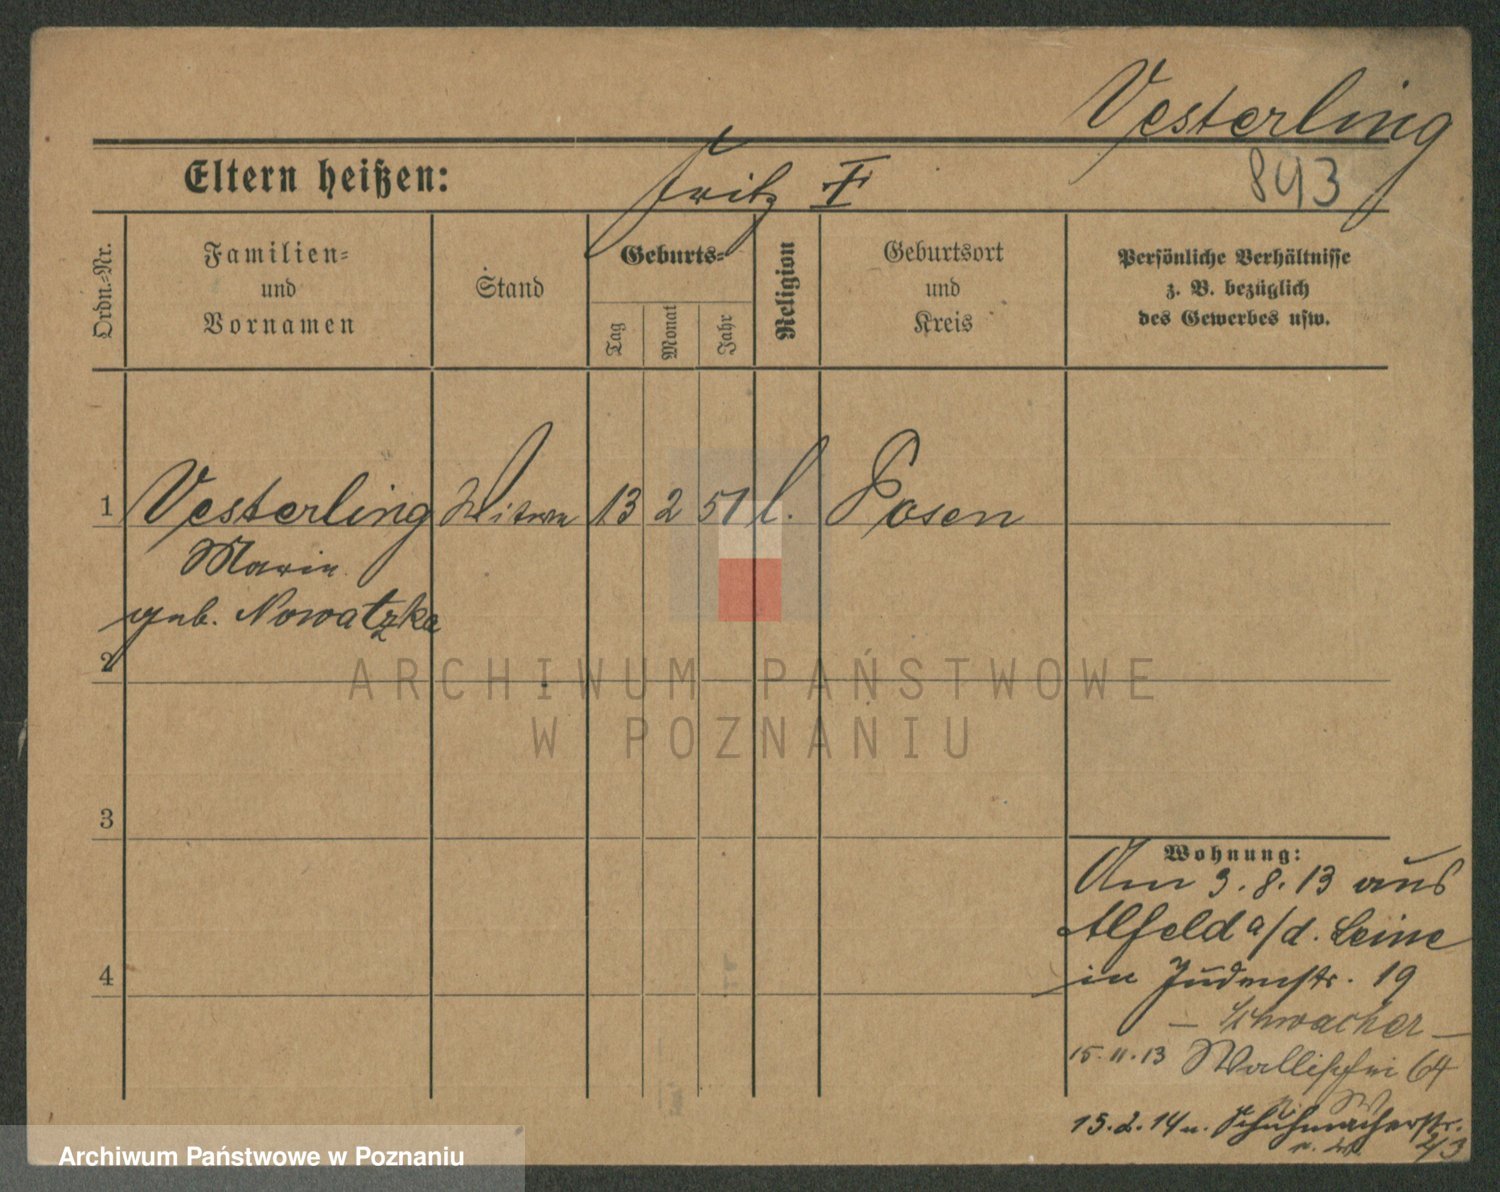 Vesterling
843
Eltern heißen:
Fritz F
Ordn.-Nr.
Familien-
und
Vornamen
Stand
Geburts-
Tag
Monat
Jahr
Religion
Geburtsort
und
Kreis
Persönliche Verhältnisse
z. B. bezüglich
des Gewerbes usw.
1
Vesterling Witwe 13 2 51 l. Posen
Marie
geb. Nowatzka
2
ARCHIWUM PAŃSTWOWE
W POZNANIU
3
Wohnung:
Am 3.8.13 aus
Alfeld a/d. Leine
in Judenstr. 19
4
– Schwacher –
15.11.13 Wallischei 64
15.2.14 n. Schuhmacherstr.
2/3
Archiwum Państwowe w Poznaniu